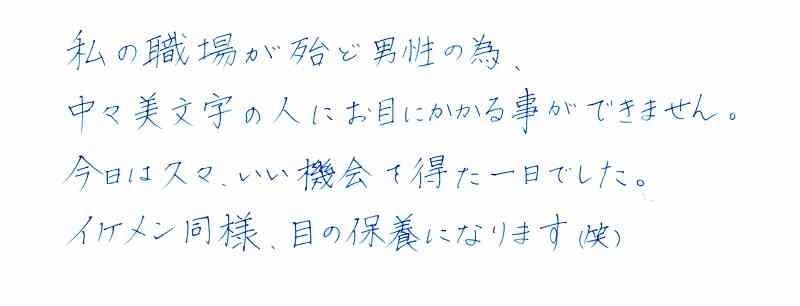 私の職場が殆ど男性の為、
中々美文字の人にお目にかかる事ができません。
今日は久々、いい機会を得た一日でした。
イケメン同様、目の保養になります(笑)